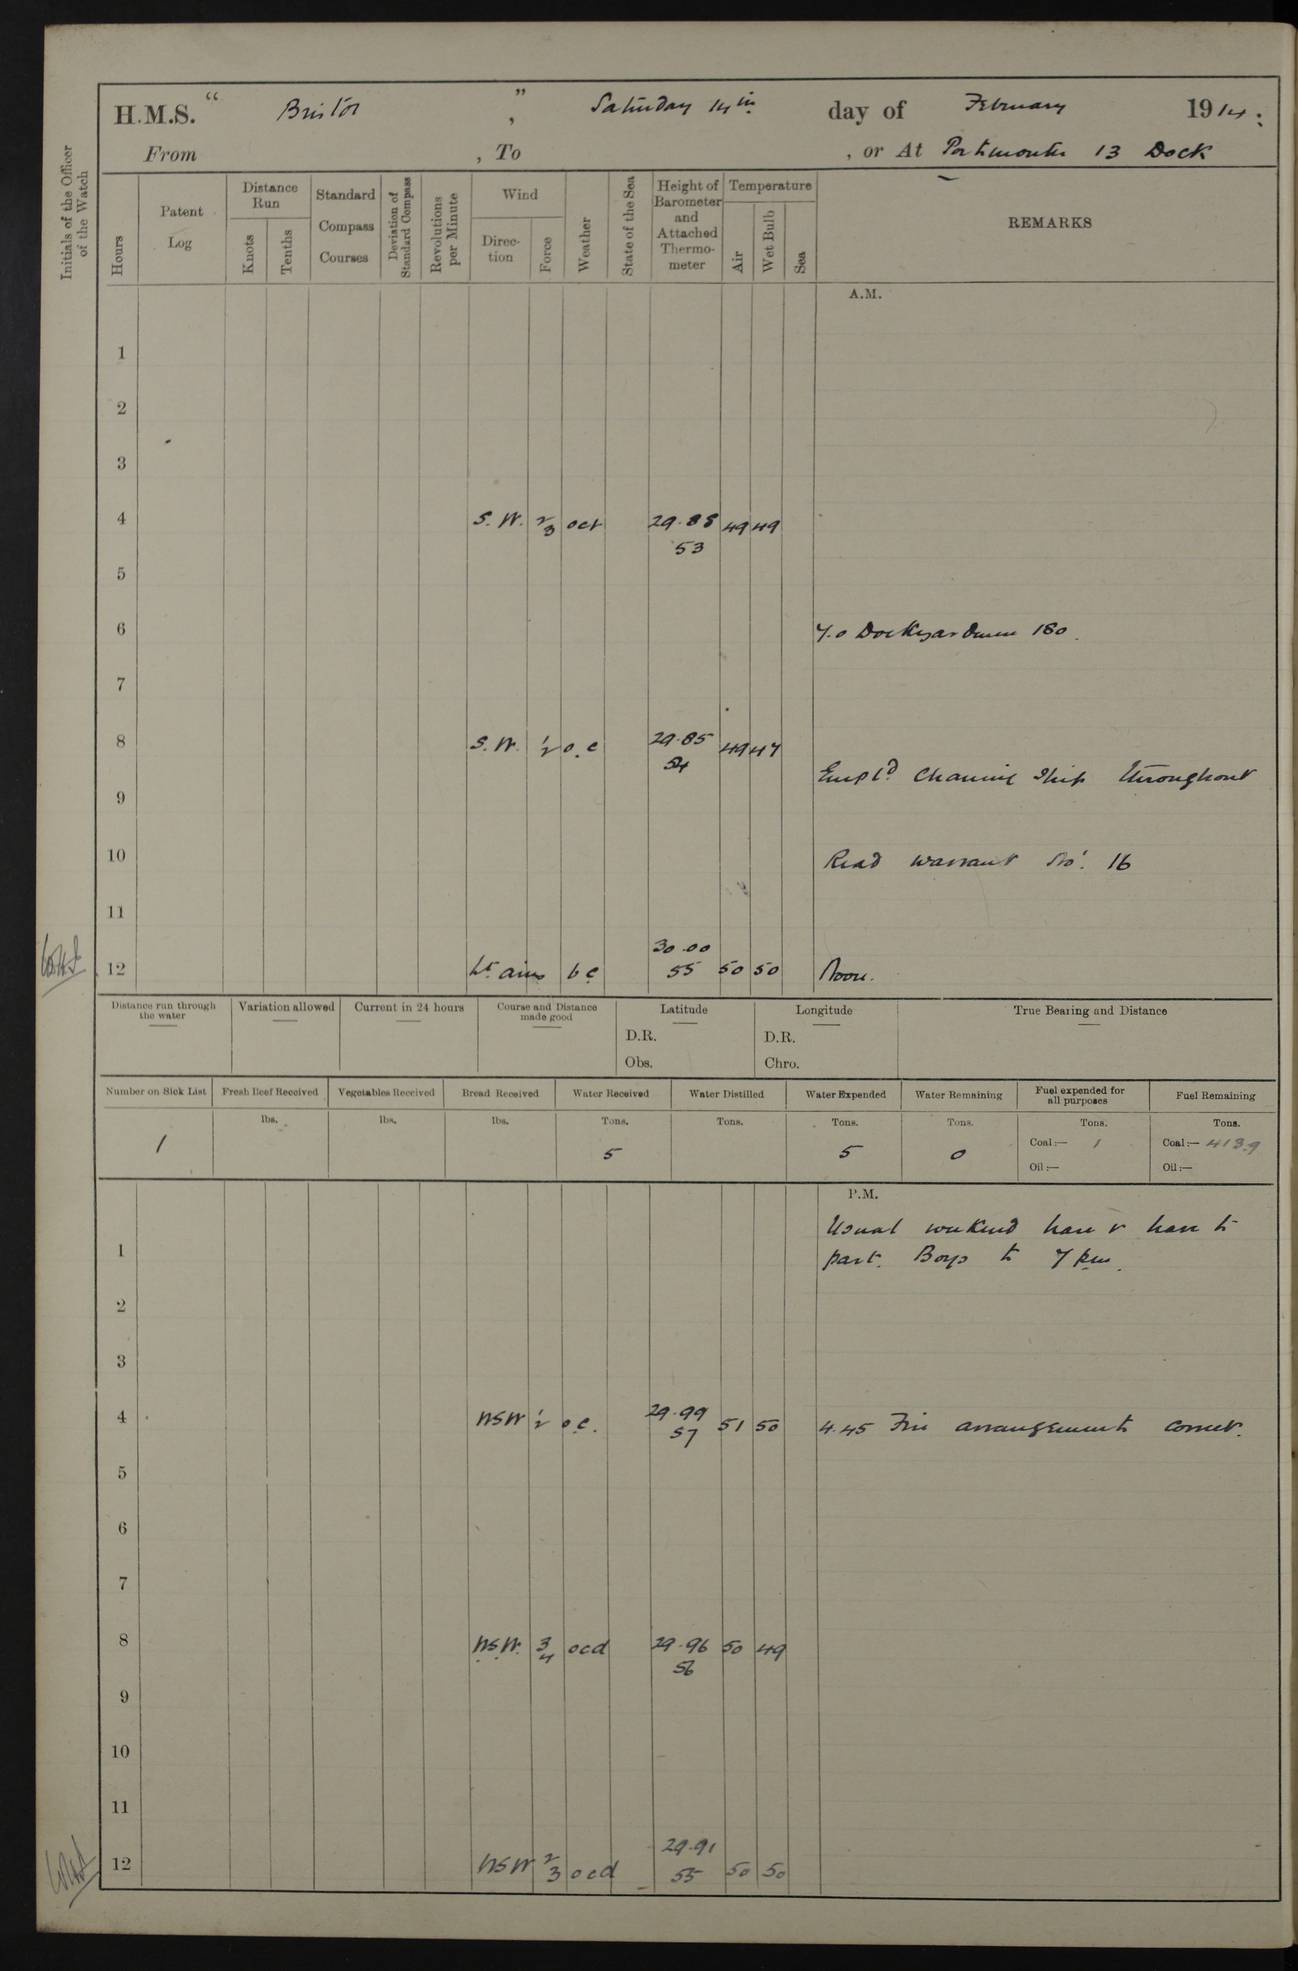 H.M.S. “ Bristol ” , Saturday 14th day of February 1914.
From , To , or At Portsmouth 13 Dock
Initials of the Officer of the Watch
Hours
Patent Log
Distance Run
Knots
Tenths
Standard Compass Courses
Deviation of Standard Compass
Revolutions per Minute
Wind
Direc-tion
Force
Weather
State of the Sea
Height of Barometer and Attached Thermo-meter
Temperature
Air
Wet Bulb
Sea
REMARKS
A.M.
1
2
3
4 S.W. 2/3 ocr 29.88 49 49
53
5
6 7.0 Dockyardmen 180.
7
8 S.W. 1/2 o.c 29.85 49 47
54
Empld. Cleaning Ship throughout
9
10 Read warrant No. 16
11
30.00
12 Lt. airs b c 55 50 50 Noon.
Distance run through the water
Variation allowed
Current in 24 hours
Course and Distance made good
Latitude
D.R.
Obs.
Longitude
D.R.
Chro.
True Bearing and Distance
Number on Sick List
1
Fresh Beef Received
lbs.
Vegetables Received
lbs.
Bread Received
lbs.
Water Received
Tons.
5
Water Distilled
Tons.
Water Expended
Tons.
5
Water Remaining
Tons.
0
Fuel expended for all purposes
Tons.
Coal :— 1
Oil :—
Fuel Remaining
Tons.
Coal :— 413.9
Oil :—
P.M.
Usual weekend leave & leave to
1 part. Boys to 7 pm.
2
3
4 WSW 1/2 o.c. 29.99 51 50 4.45 Fire arrangements correct.
57
5
6
7
8 W.S.W. 3/4 ocd 29.96 50 49
56
9
10
11
29.91
12 WSW 2/3 ocd 55 50 50